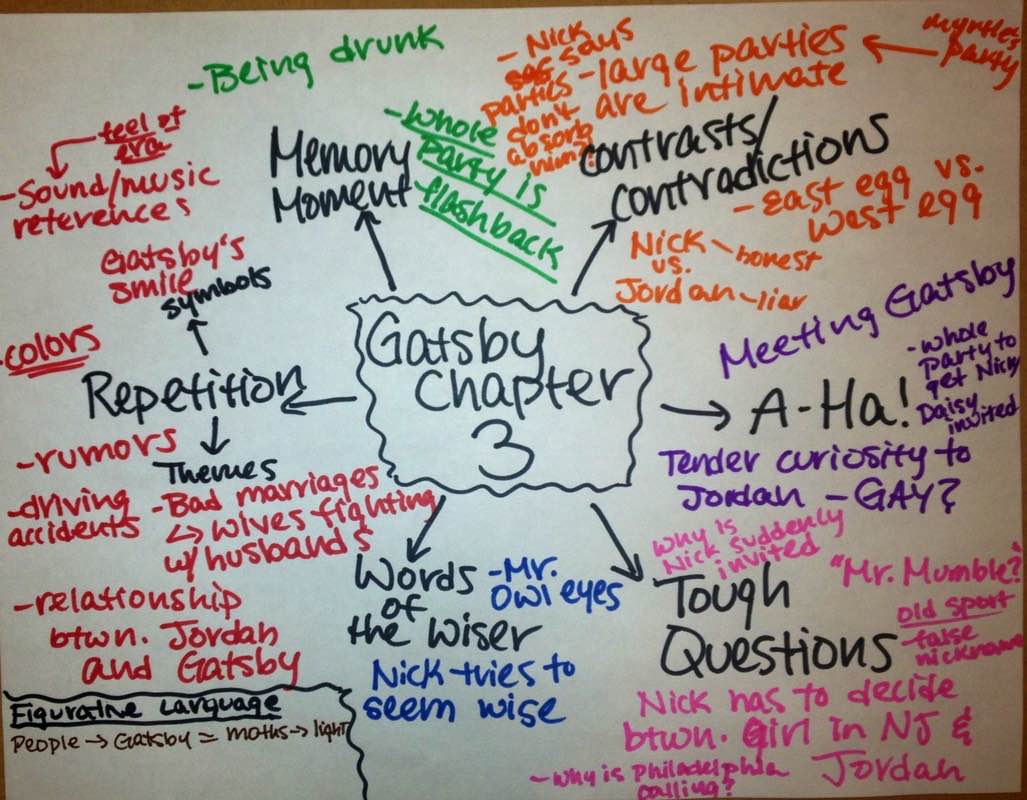 -Being drunk
Memory
Moment
-whole
Party is
flashback
- Nick
says
parties
don't
absorb
him?
-large parties
are intimate
myrtle's
party
contrasts/
contradictions
-East egg vs.
West egg
Nick - honest
vs.
Jordan - liar
feel of
era
-Sound/music
references
Gatsby's
smile
symbols
-colors
Repetition
-rumors
-driving
accidents
Themes
-Bad marriages
↳ wives fighting
w/ husbands
-relationship
btwn. Jordan
and Gatsby
Gatsby
Chapter
3
Meeting Gatsby
A-Ha!
-whole
party to
get Nick/
Daisy
invited
Tender curiosity to
Jordan - GAY?
Words
of
the wiser
-Mr.
Owl eyes
Nick tries to
seem wise
why is
Nick suddenly
invited
Tough
Questions
"Mr. Mumble?"
old sport
-false
nickname
Nick has to decide
btwn. girl in NJ &
Jordan
-why is Philadelphia
calling?
Figurative Language
People → Gatsby = moths → light